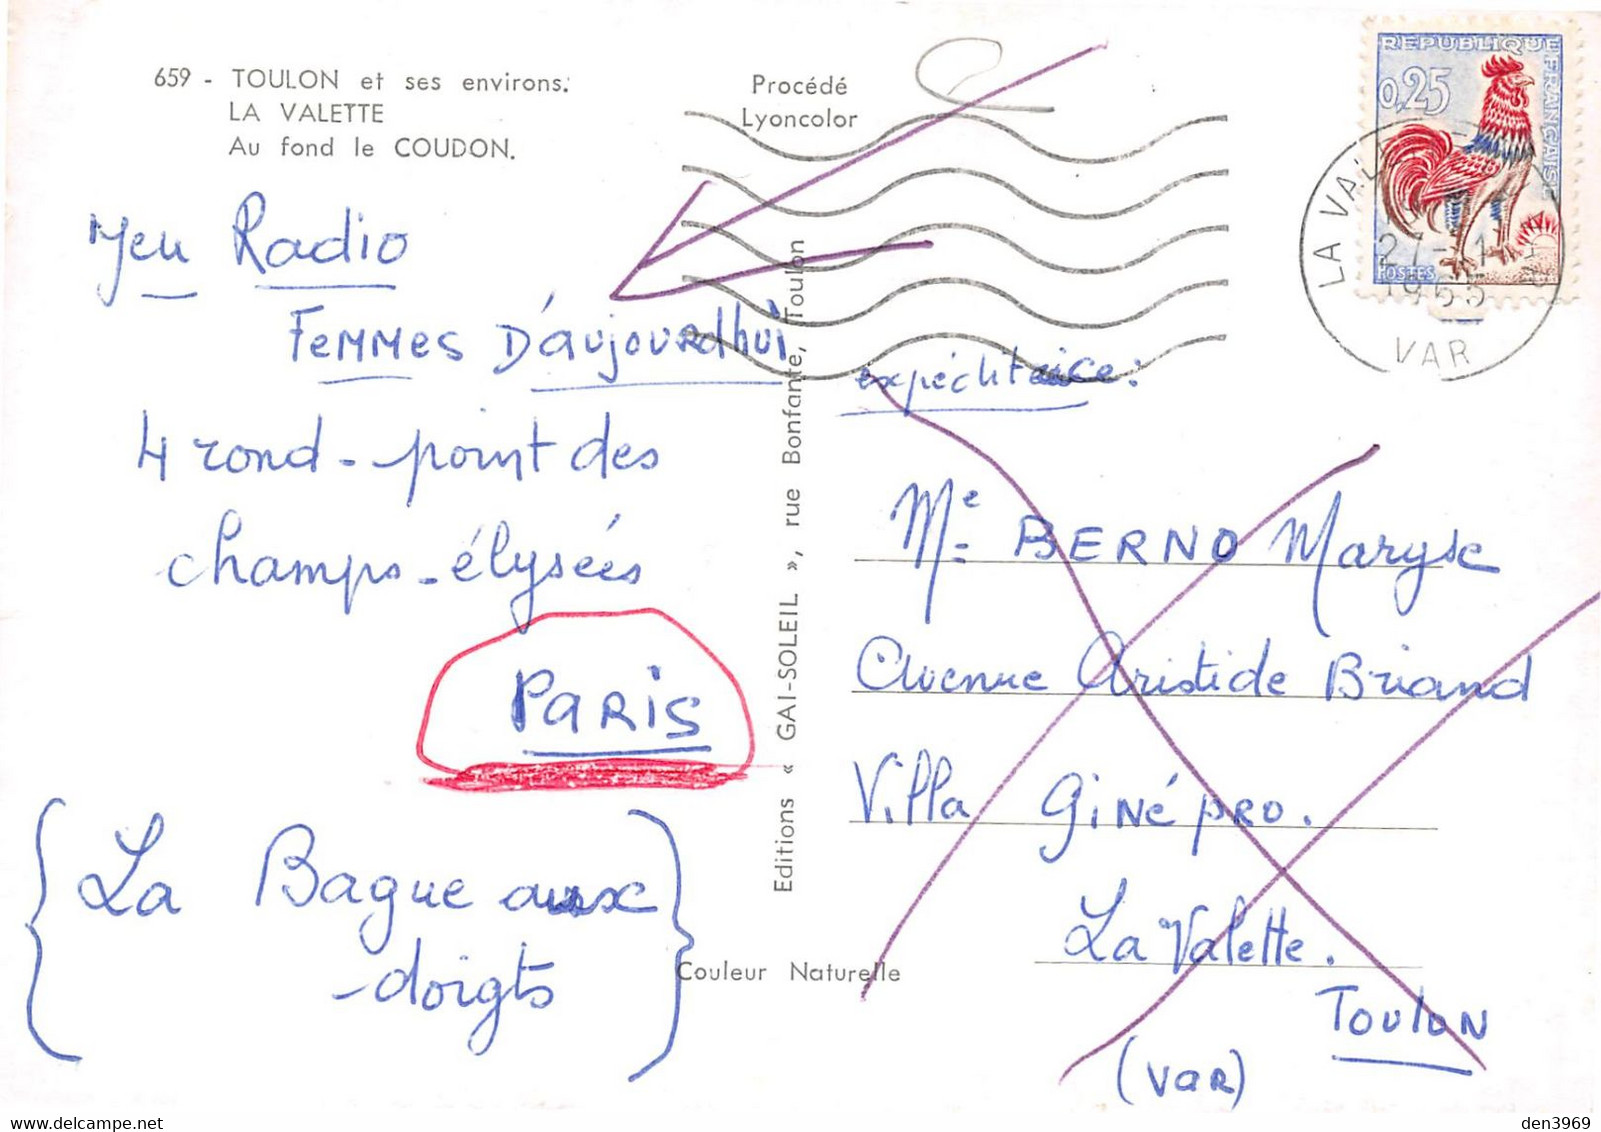 659 - TOULON et ses environs.
LA VALETTE
Au fond le COUDON.
Procédé
Lyoncolor
REPUBLIQUE FRANÇAISE
0,25
POSTES
27-1
1965
VAR
Jeu Radio
Femmes D'aujourdhui
4 rond-point des
champs-élysées
PARIS
{La Bague aux
-doigts}
Editions « GAI-SOLEIL », rue Bonfante, Toulon
Couleur Naturelle
expéditrice:
Me BERNO Maryse
Avenue Aristide Briand
Villa GiNéPRO.
La Valette.
Toulon
(VAR)
den3969